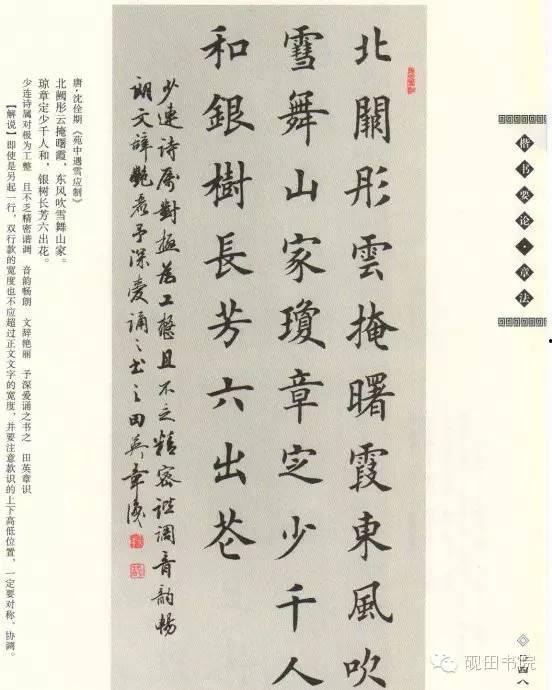 楷书要论·章法
北闕彤雲掩曙霞東風吹
雪舞山家瓊章定少千人
和銀樹長芳六出花
少連诗属對極為工整且不乏精密谐调音韵暢
朗文辞艷麗予深爱诵之书之田英章識
唐·沈佺期《苑中遇雪应制》
北阙彤云掩曙霞，东风吹雪舞山家。
琼章定少千人和，银树长芳六出花。
少连诗属对极为工整 且不乏精密谐调 音韵畅朗 文辞艳丽 予深爱诵之书之 田英章识
【解说】即使是另起一行，双行款的宽度也不应超过正文文字的宽度，并要注意款识的上下高低位置，一定要对称、协调。
〇四八
砚田书院